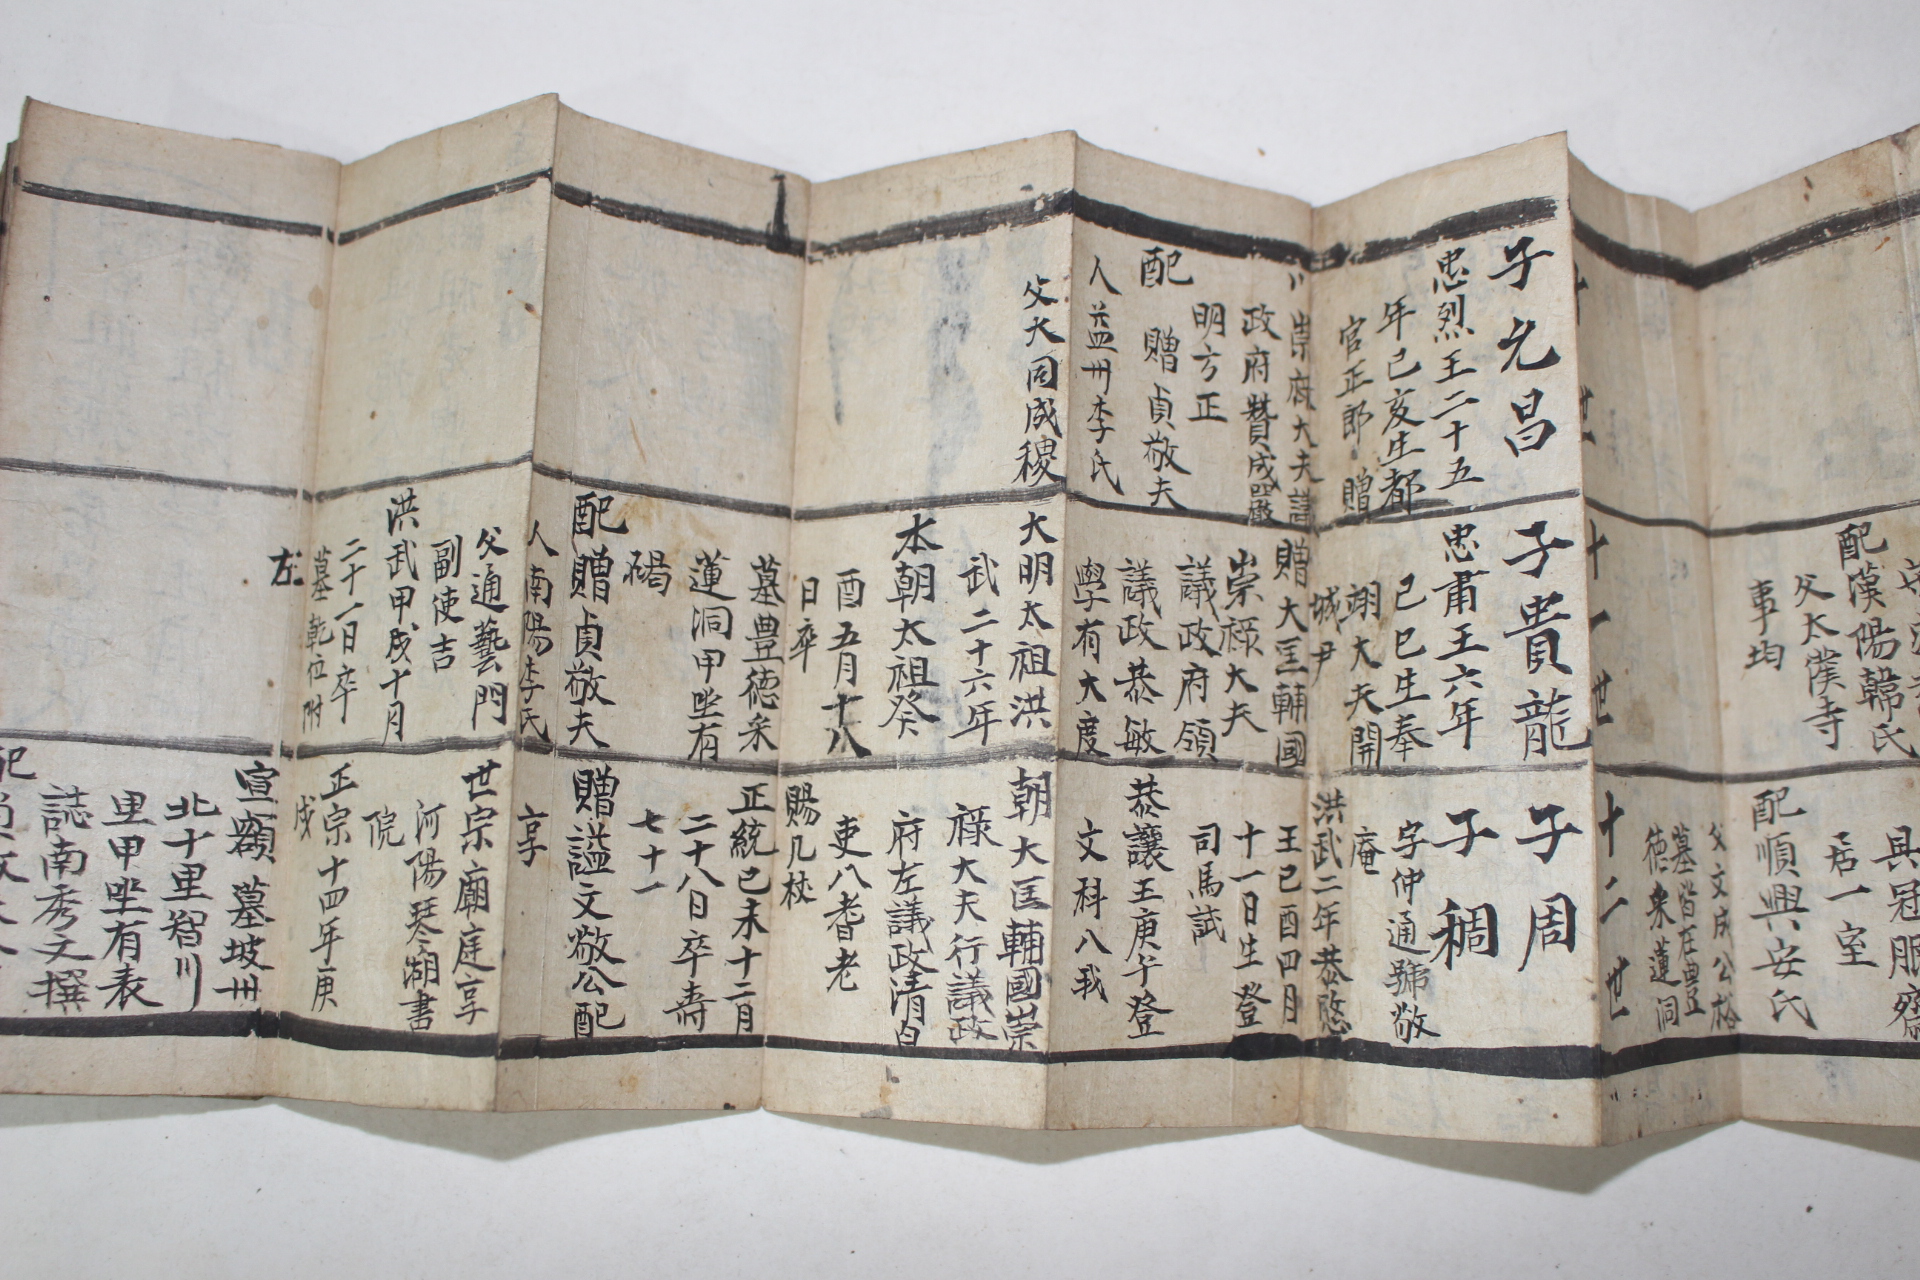 配漢陽韓氏
父太僕寺
事均
具冠服齋
居一室
配順興安氏
父文成公裕
墓皆在豊
德来蓮洞
世
十一世
十二世
子元昌
忠烈王二十五
年己亥生都
官正郎 贈
崇府大夫議
政府賛成嚴
明方正
配 贈貞敬夫
人益州李氏
父大同成稷
子貴龍
忠肅王六年
己巳生奉
翊大夫開
城尹
贈大匡輔國
崇祿大夫
議政府領
議政恭敏
學有大度
大明太祖洪
武二十六年
本朝太祖癸
酉五月十八
日卒
墓豊德来
蓮洞甲坐有
碣
配贈貞敬夫
人南陽李氏
父通藝門
副使吉
洪武甲戌十月
二十一日卒
墓乾位附
左
子周
子稠
字仲通號敬
庵
洪武二年恭愍
王己酉四月
十一日生登
司馬試
恭讓王庚午登
文科八我
朝大匡輔國崇
祿大夫行議政
府左議政清白
吏八耆老
賜几杖
正統己未十二月
二十八日卒壽
七十一
贈諡文敬公配
享
世宗廟庭享
河陽琴湖書
院
正宗十四年庚
戌
宣額 墓坡州
北十里智川
里甲坐有表
誌南秀文撰
配